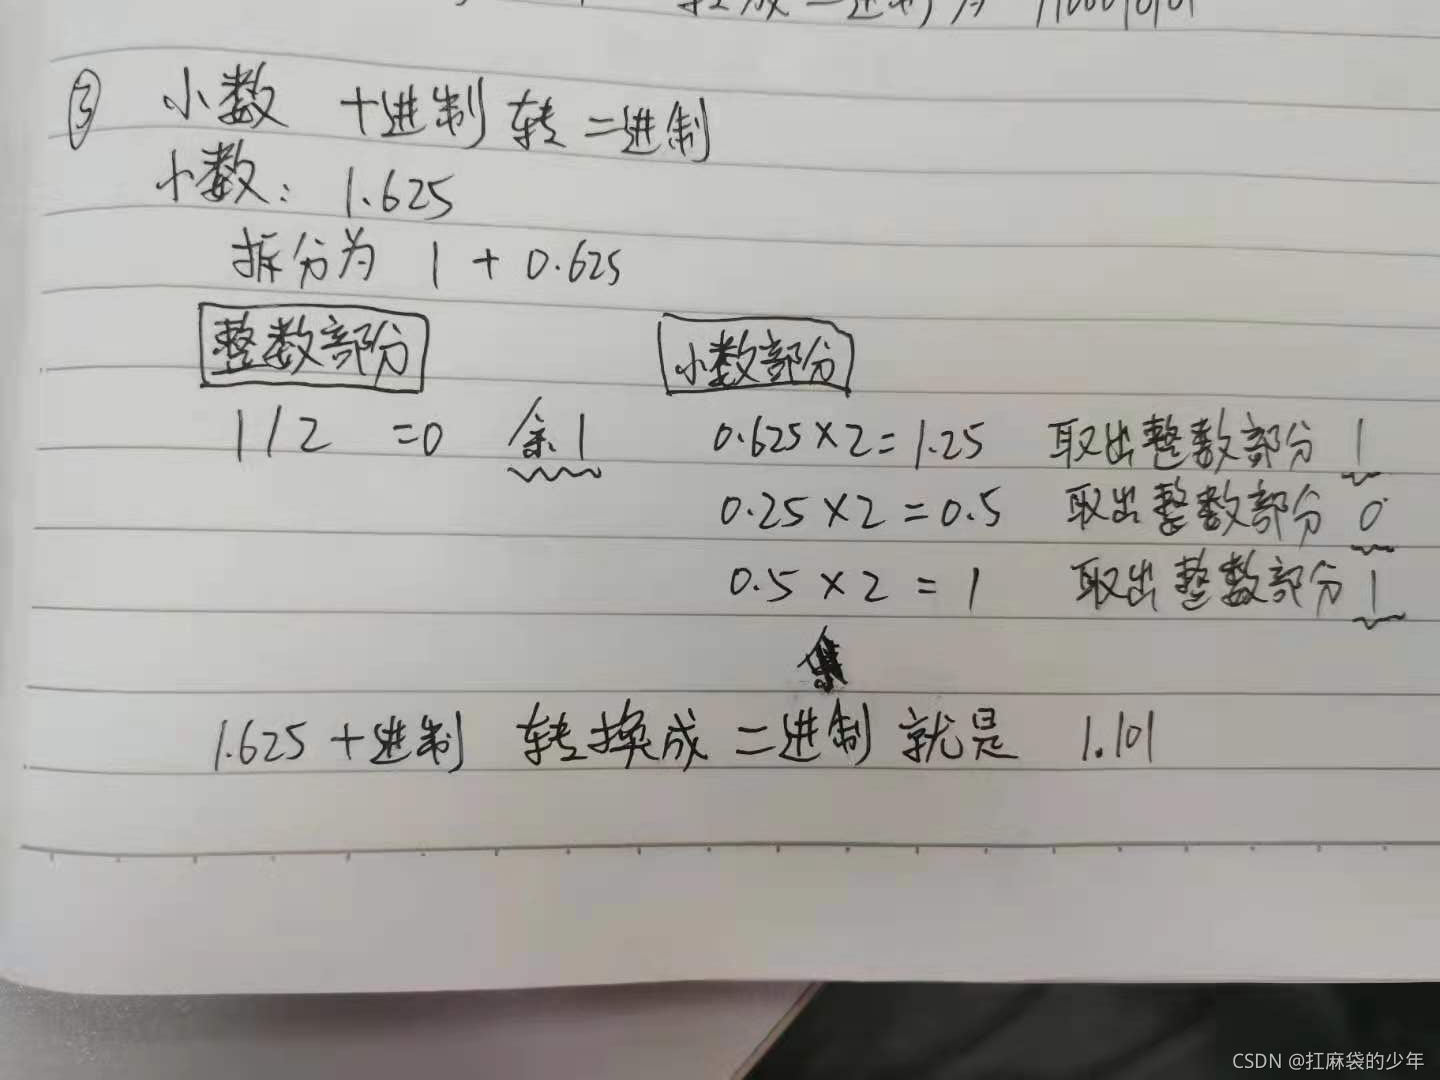 转成二进制为
③ 小数 十进制转二进制
小数: 1.625
拆分为 1 + 0.625
整数部分 小数部分
1/2 =0 余1 0.625×2=1.25 取出整数部分 1
0.25×2=0.5 取出整数部分 0
0.5×2=1 取出整数部分 1
1.625十进制 转换成二进制就是 1.101
CSDN @扛麻袋的少年